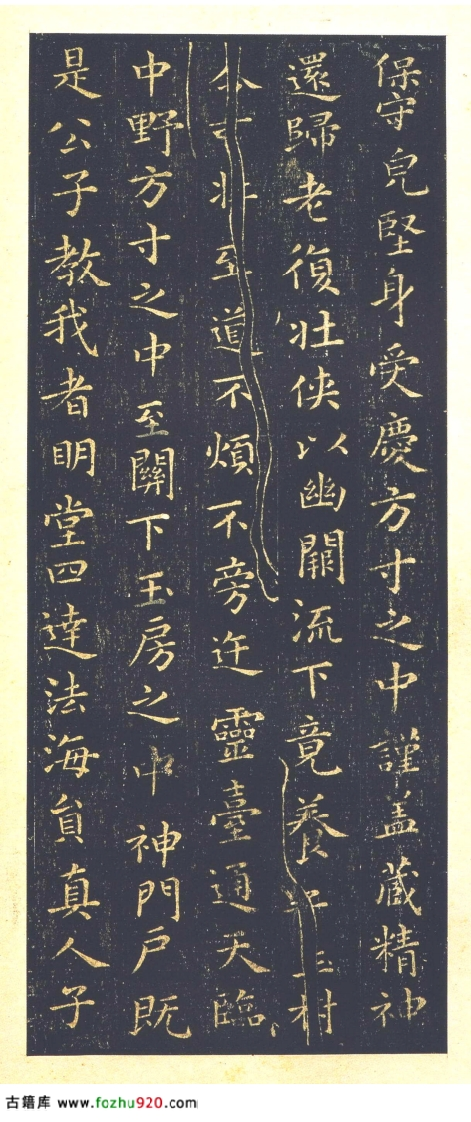 保守皃堅身受慶方寸之中謹盖藏精神
還歸老復壯侠以幽闕流下竟養玉村
令可壯至道不煩不旁迕靈臺通天臨
中野方寸之中至關下玉房之中神門戶既
是公子教我者眀堂四達法海貟真人子
古籍库 www.fozhu920.com